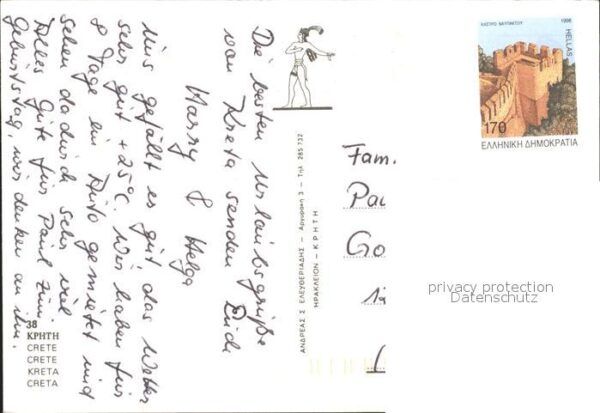 Die besten Urlaubsgrüße
von Kreta senden Euch
Harry & Helga
Uns gefällt es gut, das Wetter
sehr gut + 25°C. Wir haben für
8 Tage ein Auto gemietet und
sehen dadurch sehr viel
Alles Gute für Paul zum
Geburtstag, wir denken an ihn.
38
ΚΡΗΤΗ
CRETE
CRETE
KRETA
CRETA
ΑΝΔΡΕΑΣ Σ ΕΛΕΥΘΕΡΙΑΔΗΣ - Αργυράκη 3 - Τηλ 285 732
ΗΡΑΚΛΕΙΟΝ - ΚΡΗΤΗ
ΚΑΣΤΡΟ 1998
HELLAS
170
ΕΛΛΗΝΙΚΗ ΔΗΜΟΚΡΑΤΙΑ
Fam.
Pau
Go
privacy protection
Datenschutz